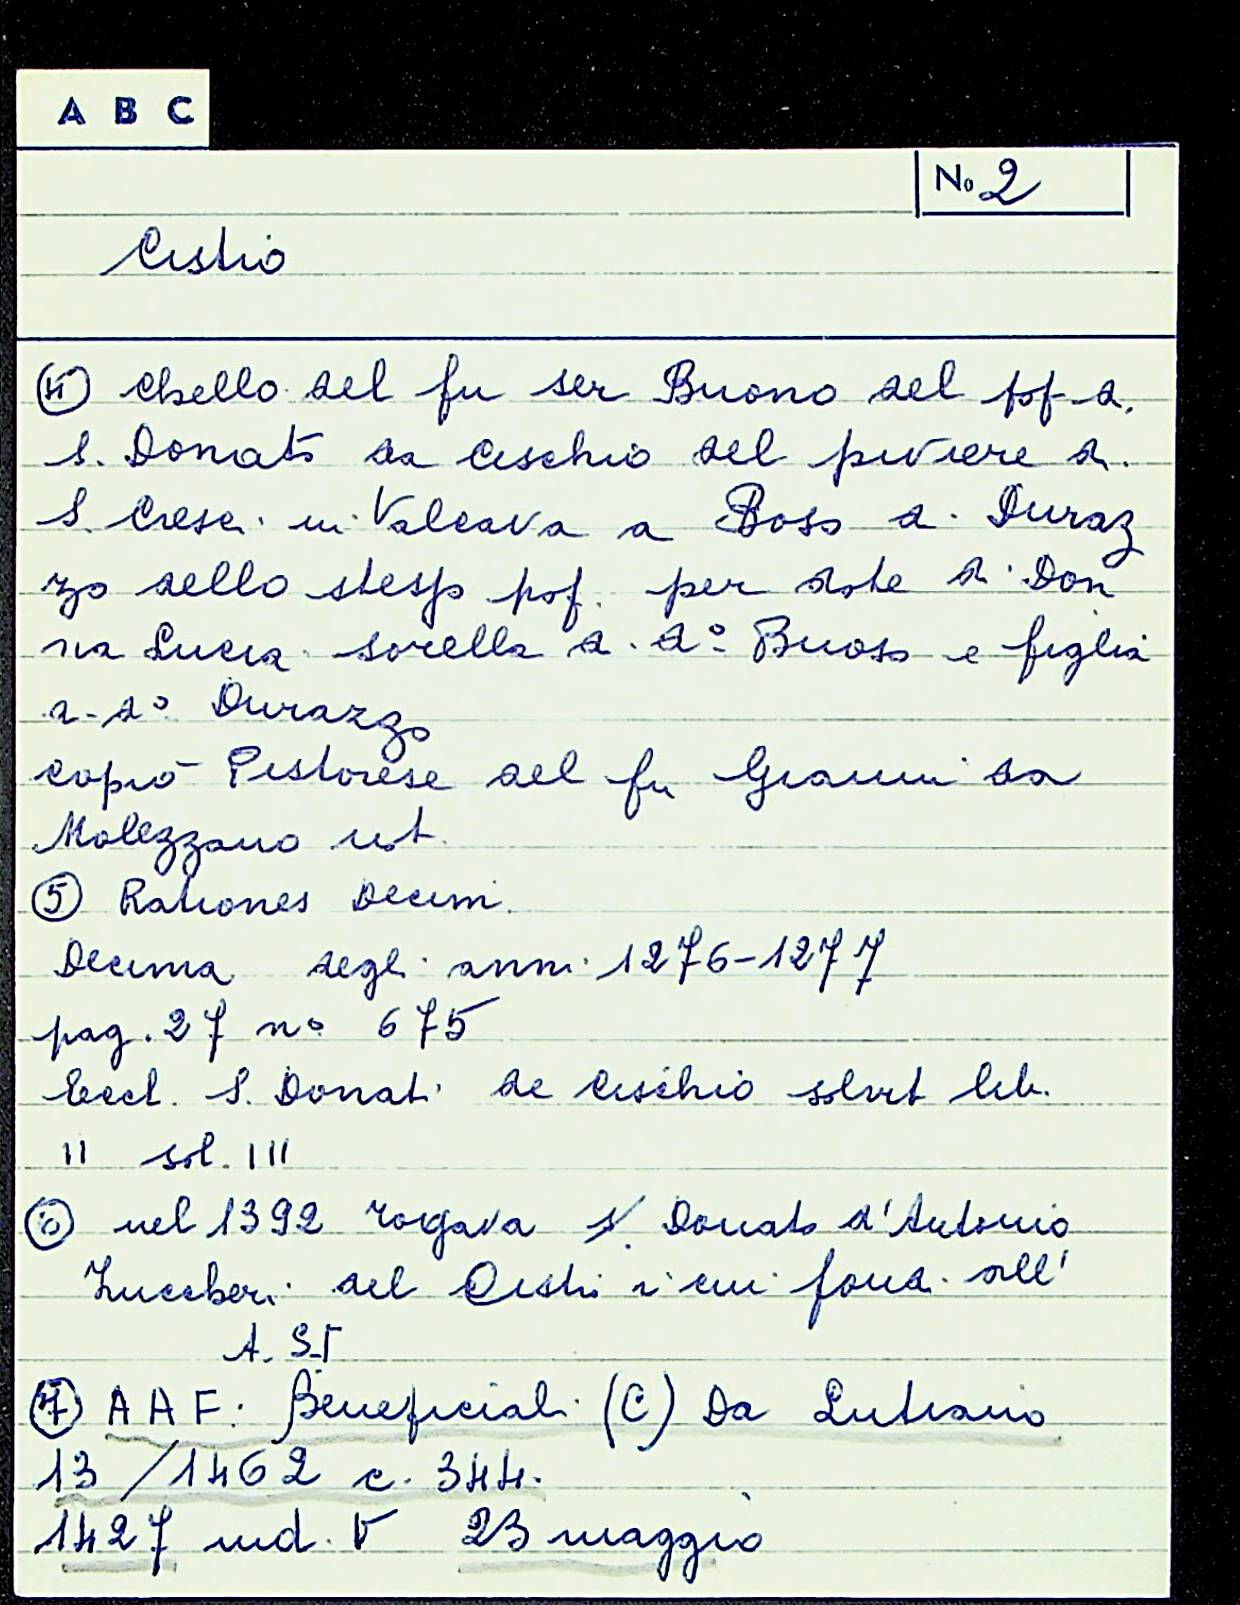 A B C
No 2
Cistio
④ Chello del fu ser Buono del pop. di
S. Donato da Cischio del piviere di
S. Cresci in Valcava a Boso di Duraz
zo dello stesso pop. per dote di Don
na Lucia sorella di dº Buoso e figlia
di dº Durazzo
copiò Pistorese del fu Gianni da
Molezzano not.
⑤ Rationes Decim.
Decima degli anni 1276-1277
pag. 27 nº 675
Eccl. S. Donati de Cischio solvit lib.
II sol. III
⑥ nel 1392 rogava S. Donato d'Antonio
Zuccheri del Cistio i cui all'
A. S. F
⑦ AAF. Beneficiali (C) Da Lutiano
13/1462 c. 344.
1427 ind. V 23 maggio